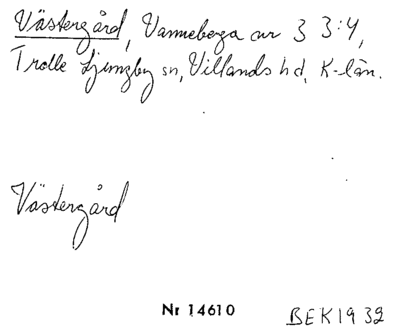 Västergård, Vanneberga nr 3 3:4,
Trolle Ljungby sn, Villands hd, K-län.
Västergård
Nr 14610 BEK 1932